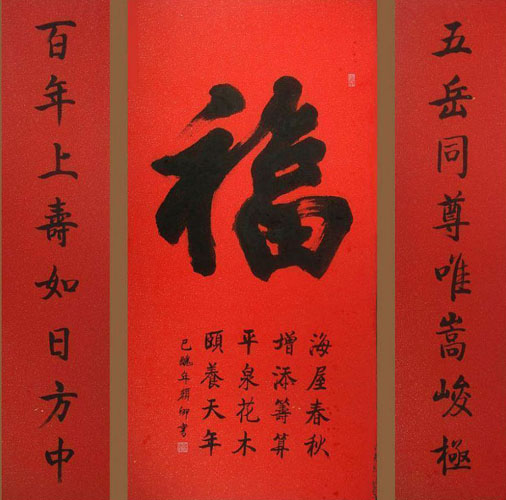 五岳同尊唯嵩峻極
福
海屋春秋
增添籌算
平泉花木
頤養天年
百年上壽如日方中